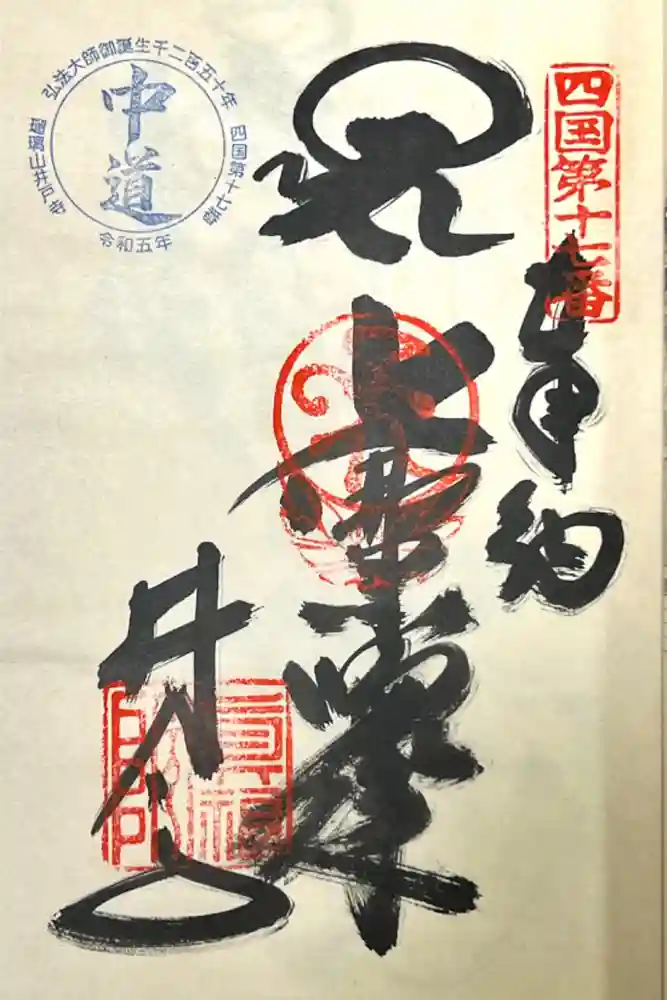 四国第十七番
奉納
七佛薬師
井戸寺
弘法大師御誕生千二百五十年
四国第十七番
瑠璃山井戸寺
中道
令和五年